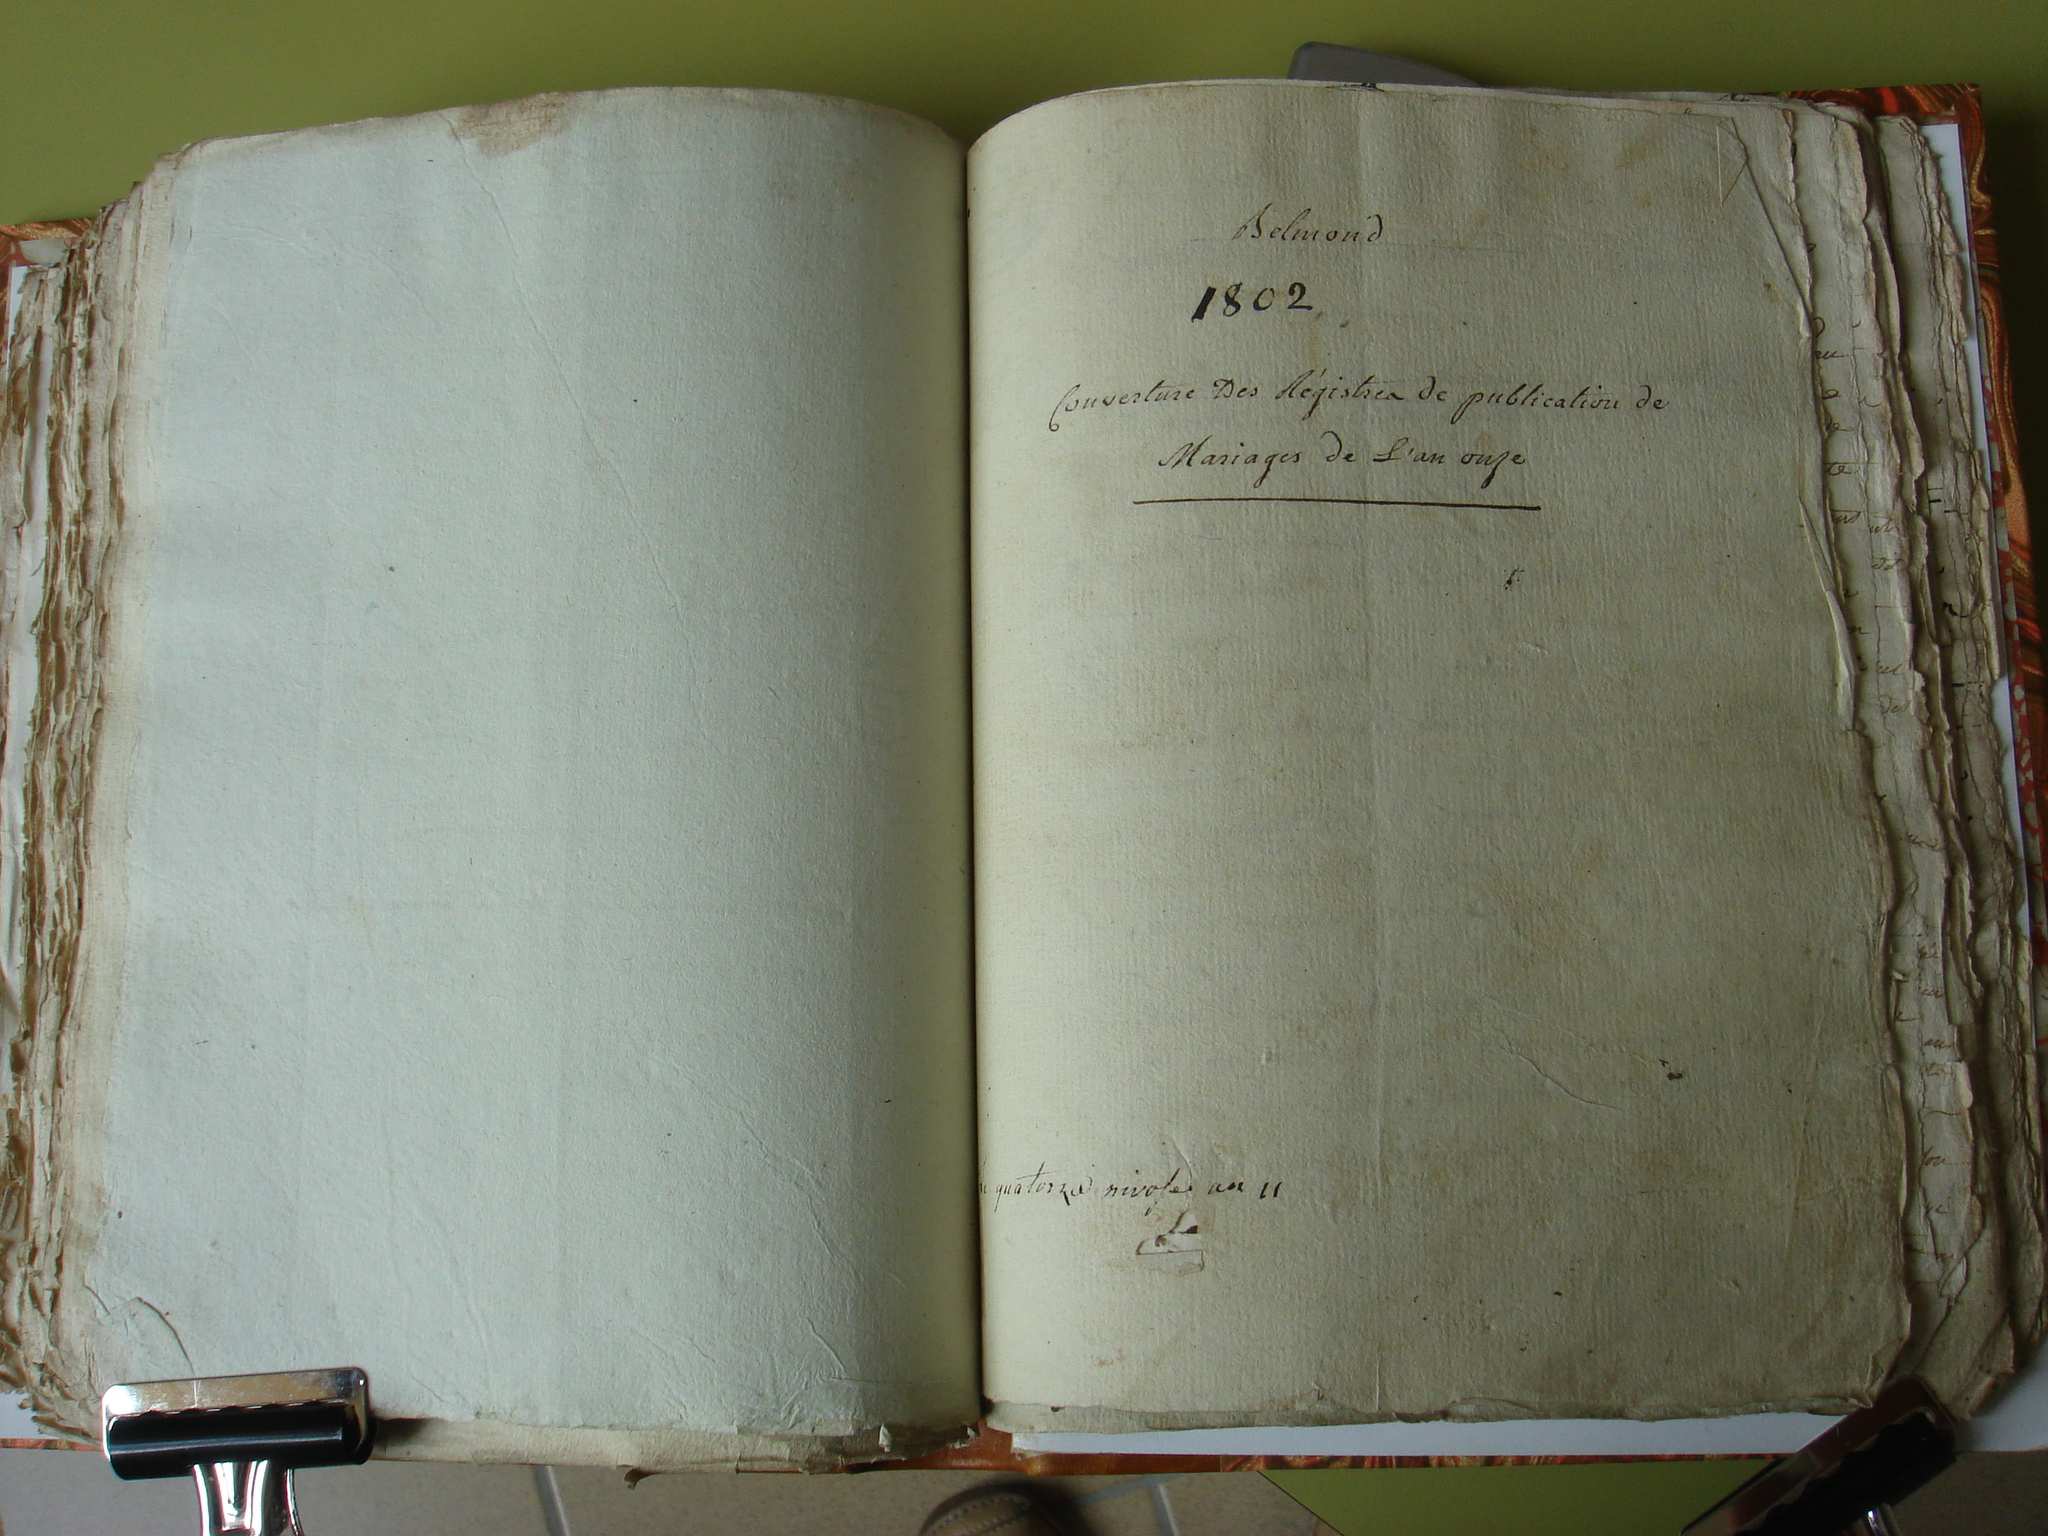 Belmond
1802
Couverture Des Régistres de publication de
Mariages de L'an onze
quatorze nivose an 11